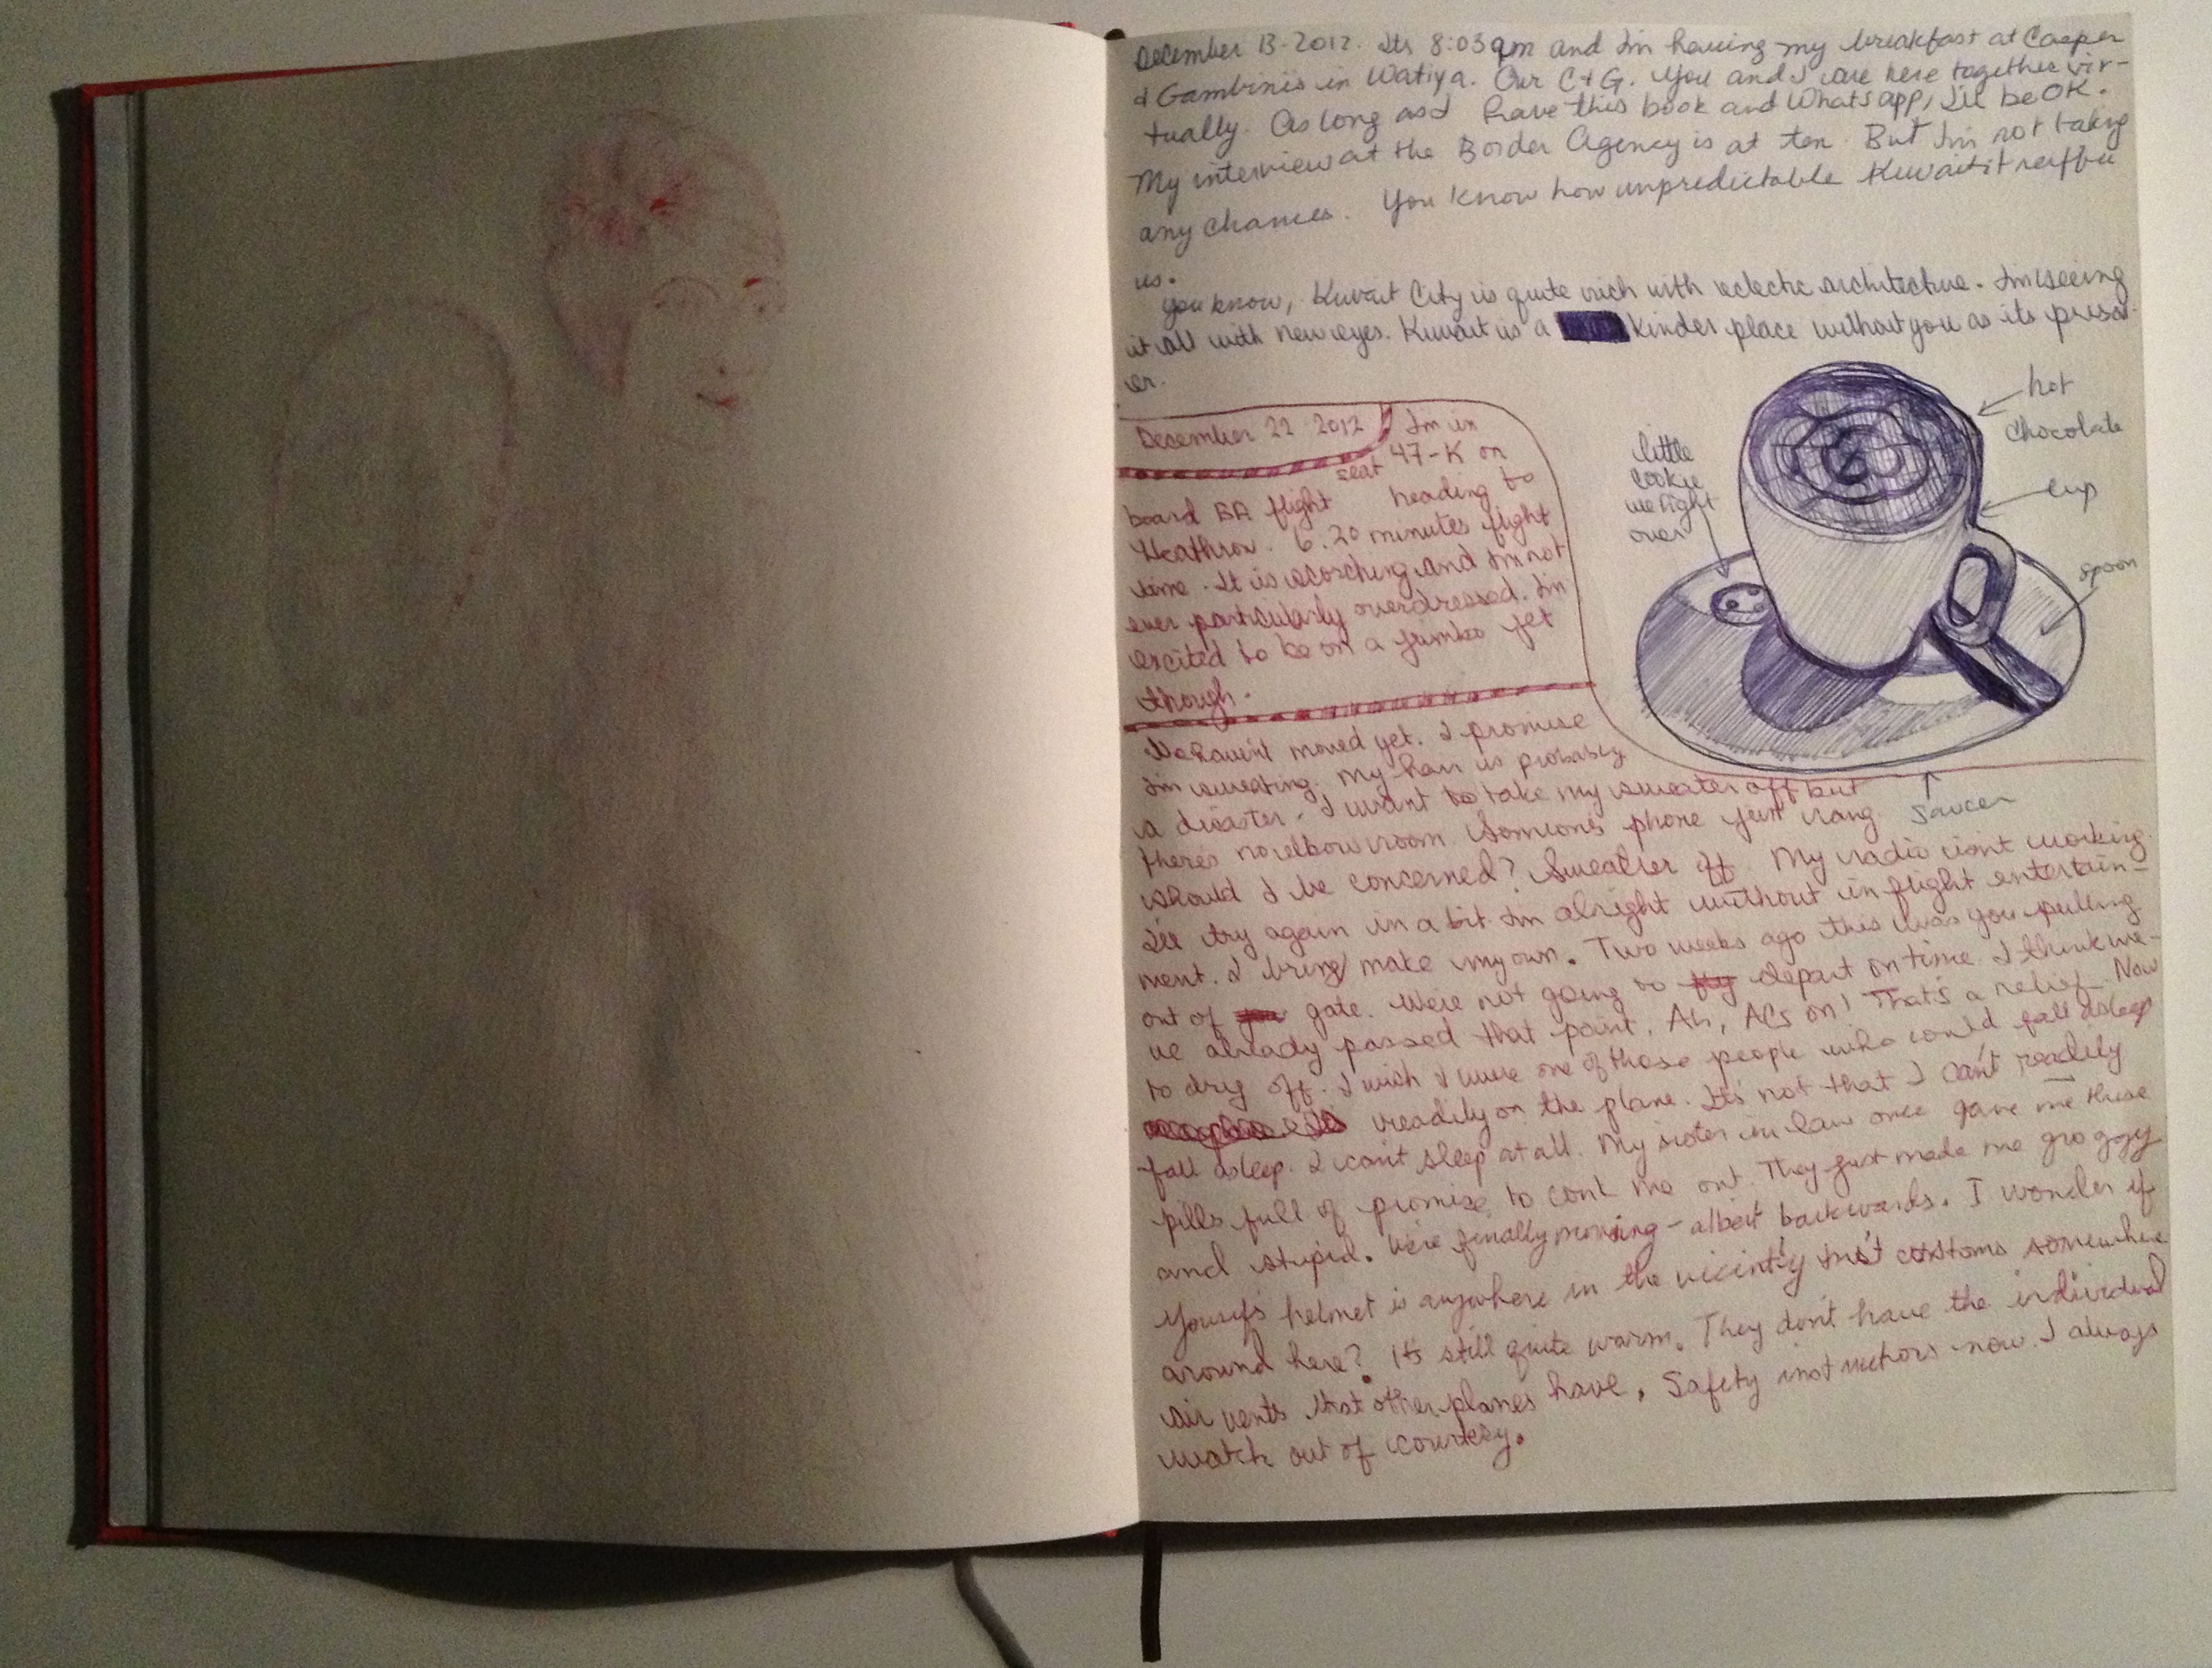 December 13-2012. Its 8:03am and Im having my breakfast at Casper
& Gambinis in Watiya. Our C&G. You and I are here together vir-
tually. As long as I have this book and Whatsapp, I'll be OK.
My interview at the Border Agency is at ten. But Im not taking
any chances. You know how unpredictable Kuwait traffic
is.
You know, Kuwait City is quite rich with eclectic architecture. Im seeing
it all with new eyes. Kuwait is a kinder place without you as its prison-
er.
hot
chocolate
little
cookie
we fight
over
cup
spoon
saucer
December 22 2012 Im in
seat 47-K on
board BA flight heading to
Heathrow. 6.20 minutes flight
time. It is scorching and Im not
even particularly overdressed. Im
excited to be on a jumbo jet
though.
We haven't moved yet. I promise
Im sweating. My hair is probably
a disaster. I want to take my sweater off but
there's no elbow room. Someone's phone just rang
should I be concerned? Sweater off. My radio isn't working.
I'll try again in a bit. Im alright without in flight entertain-
ment. I bring/make my own. Two weeks ago this was you pulling
out of gate. We're not going to depart on time. I think we-
've already passed that point. Ah, ACs on! That's a relief. Now
to dry off. I wish I were one of those people who could fall asleep
readily on the plane. It's not that I can't readily
fall asleep. I can't sleep at all. My sister in law once gave me these
pills full of promise to conk me out. They just made me groggy
and stupid. We're finally moving - albeit backwards. I wonder if
Yousif's helmet is anywhere in the vicinity Isn't customs somewhere
around here? It's still quite warm. They don't have the individual
air vents that other planes have. Safety instructions now. I always
watch out of courtesy.